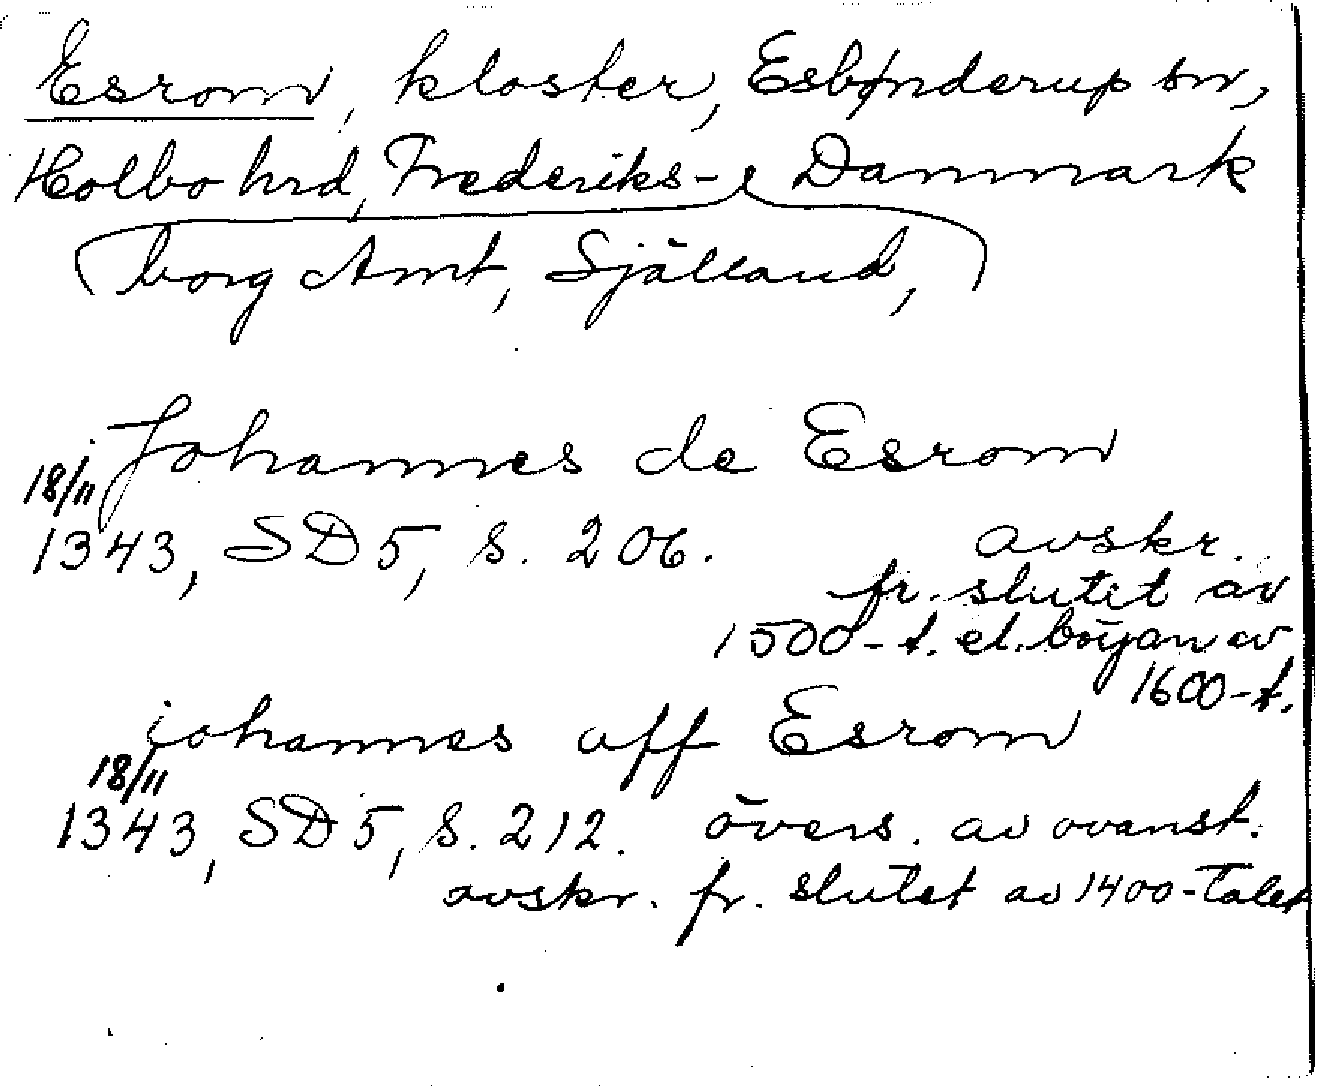 Esrom, kloster, Esbønderup sn,
Holbo hrd, Frederiks- Danmark
borg Amt, Själland,
Johannes de Esrom
18/11
1343, SD 5, s. 206. avskr.
fr. slutet av
1500-t. el. början av
1600-t.
johannes aff Esrom
18/11
1343, SD 5, s. 212. övers. av ovanst.
avskr. fr. slutet av 1400-talet